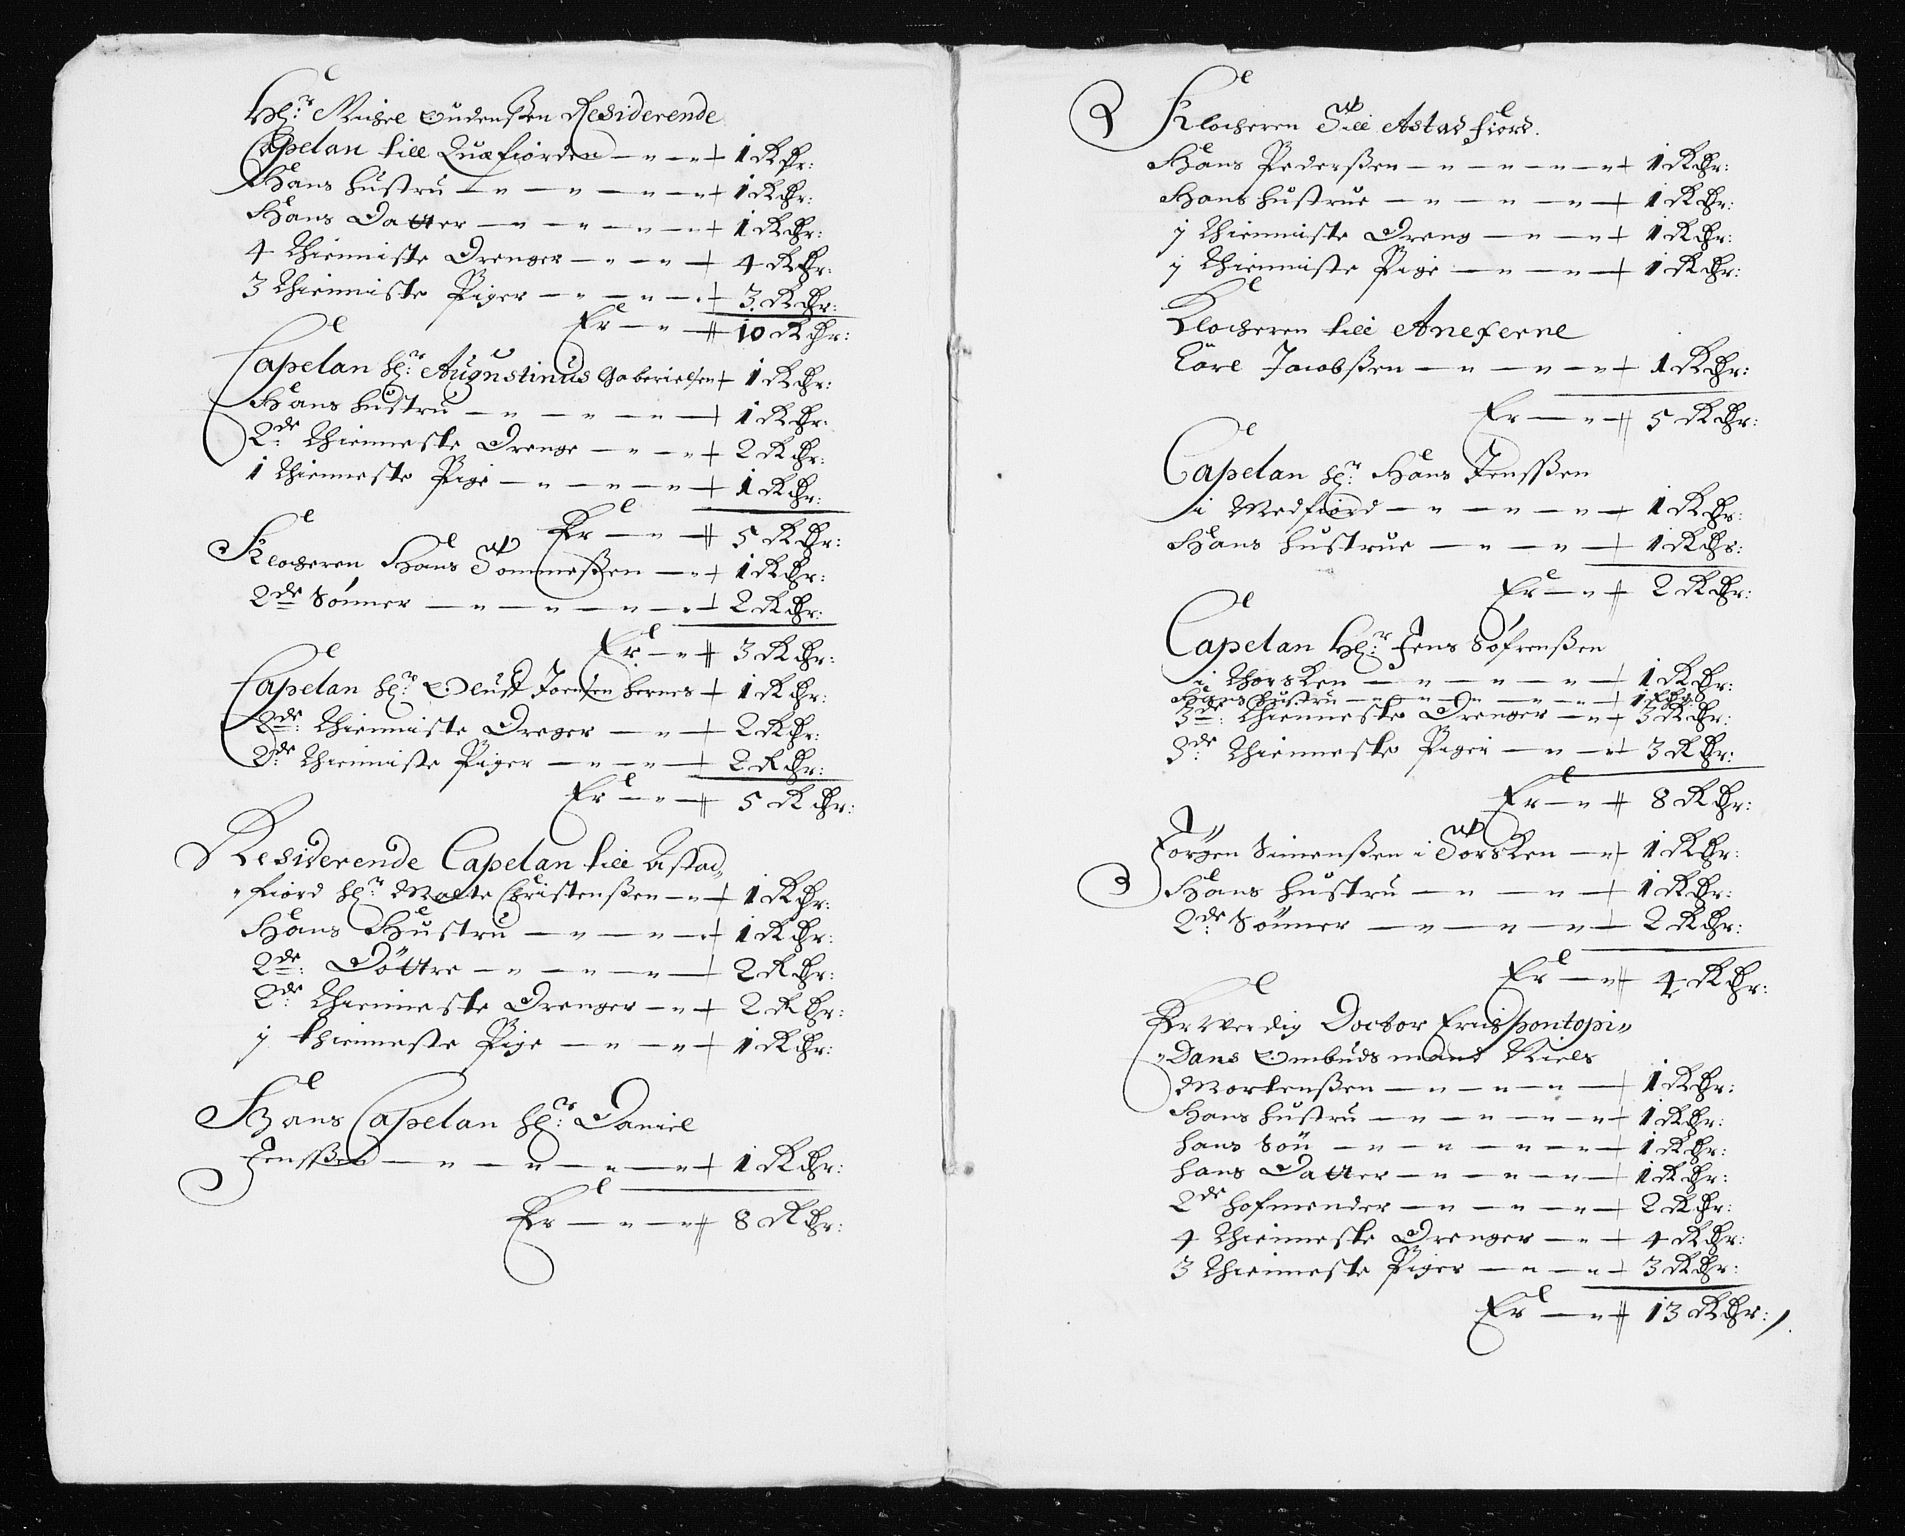 Hr: Michel Oudensen Residerende
Capelan till Quæfiorden — 1 Rdr:
Hans hustru — 1 Rdr:
Hans Datter — 1 Rdr:
4 Thienniste Drenger — 4 Rdr:
3 Thienniste Piger — 3 Rdr:
Er — 10 Rdr:
Capelan hr: Augustinus Gaberielsen 1 Rdr:
Hans hustru — 1 Rdr:
2de Thienneste Drenge — 2 Rdr:
1 Thienneste Pige — 1 Rdr:
Er — 5 Rdr:
Klocheren Hans Tommeßen — 1 Rdr:
2de Sønner — 2 Rdr:
Er — 3 Rdr:
Capelan hr: Oluff Joensen hernes 1 Rdr:
2de: Thienniste Dreger — 2 Rdr:
2de Thienniste Piger — 2 Rdr:
Er — 5 Rdr:
Residerende Capelan till Astad„
„fiord hr: Malte Christenßen — 1 Rdr:
Hans Hustru — 1 Rdr:
2de: Döttre — 2 Rdr:
2de: Thienneste Drenger — 2 Rdr:
j thienneste Pige — 1 Rdr:
Hans Capelan hr: Daniel
Jenßen — 1 Rdr:
Er — 8 Rdr:
Klocheren Till Astadfiord.
Hans Pederßen — 1 Rdr:
Hans hustrue — 1 Rdr:
j Thienniste Dreng — 1 Rdr:
j Thienniste Pige — 1 Rdr:
Klocheren till Aneferne
Carl Jacobßen — 1 Rdr:
Er — 5 Rdr:
Capelan hr: Hans Jenßen
i Medfiord — 1 Rdr:
Hans hustrue — 1 Rdr:
Er — 2 Rdr:
Capelan Hr: Jens Söfrenßen
i Thorsken — 1 Rdr:
Hans hustru — 1 Rdr:
3de: Thienneste Drenger — 3 Rdr:
3de: Thienneste Piger — 3 Rdr:
Er — 8 Rdr:
Jörgen Simenßen i Torsken — 1 Rdr:
Hans hustru — 1 Rdr:
2de: Sönner — 2 Rdr:
Er — 4 Rdr:
Erwerdig Doctor Erus pontopi„
„Dans Ombudsmand Niels
Mortenßen — 1 Rdr:
Hans hustru — 1 Rdr:
hans Sön — 1 Rdr:
hans Datter — 1 Rdr:
2de hofmender — 2 Rdr:
4 Thienneste Drenger — 4 Rdr:
3 Thienneste Piger — 3 Rdr:
Er — 13 Rdr: